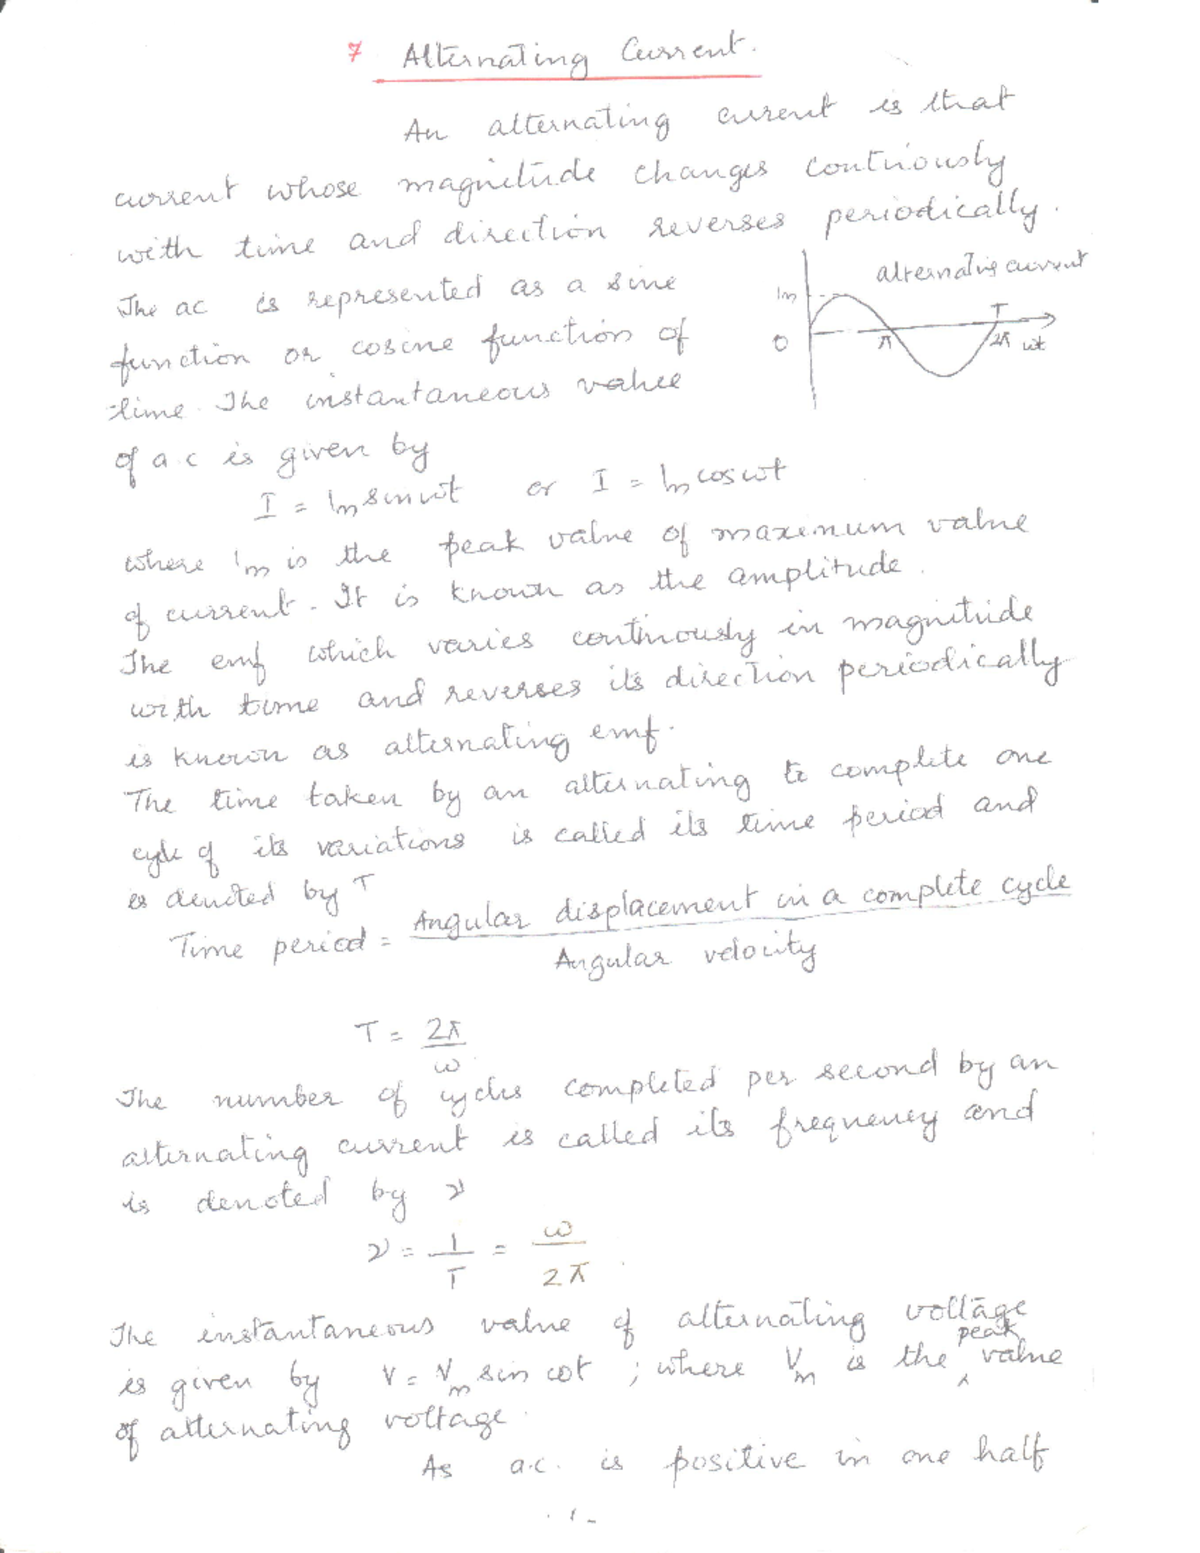 7 Alternating Current.
An alternating current is that
current whose magnitude changes contniously
with time and direction reverses periodically.
The ac is represented as a sine
function or cosine function of
time. The instantaneous value
of a.c is given by
alternating current
Im
0
π
T
2π ωt
I = Im sin ωt or I = Im cos ωt
where Im is the peak value of maximum value
of current. It is known as the amplitude.
The emf which varies continously in magnitude
with time and reverses its direction periodically
is known as alternating emf.
The time taken by an alternating to complete one
cycle of its variations is called its time period and
is denoted by T
Time period = Angular displacement in a complete cycle
Angular velocity
T = 2π
ω
The number of cycles completed per second by an
alternating current is called its frequency and
is denoted by ν
ν = 1/T = ω/2π
The instantaneous value of alternating voltage
is given by V = Vm sin ωt ; where Vm is the peak value
of alternating voltage.
As a.c. is positive in one half
- 1 -